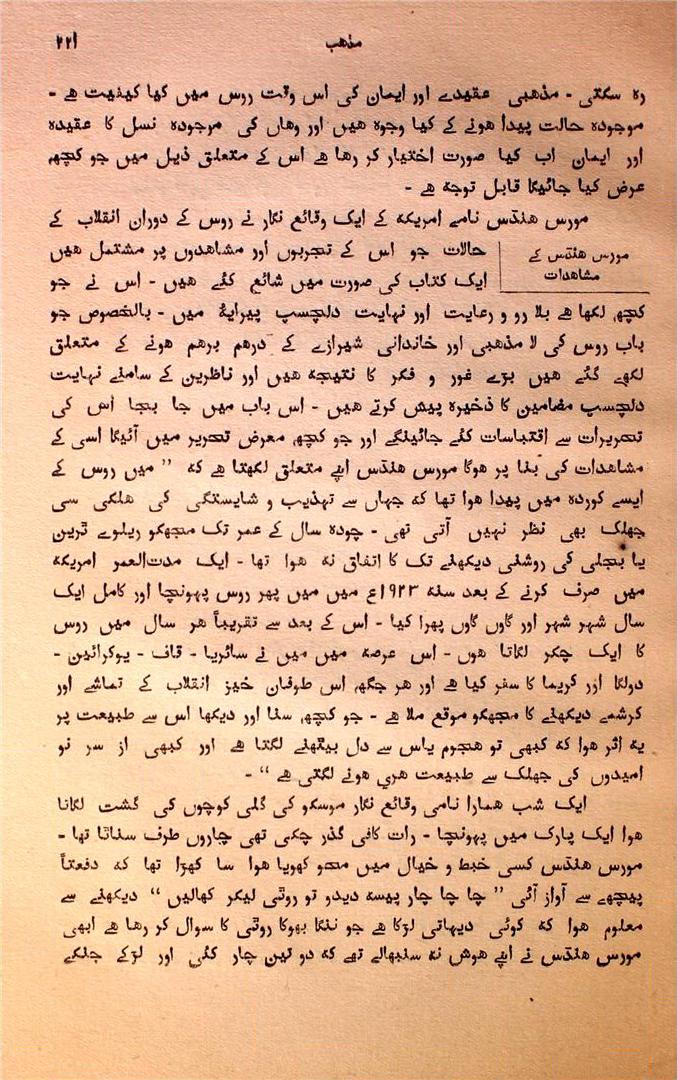 مذهب ۲۲۱
رہ سکتی - مذهبی عقیدے اور ایمان کی اس وقت روس میں کیا کیفیت ہے -
موجودہ حالت پیدا ہونے کے کیا وجوہ ہیں اور وہاں کی موجودہ نسل کا عقیدہ
اور ایمان اب کیا صورت اختیار کر رہا ہے اس کے متعلق ذیل میں جو کچھ
عرض کیا جائیگا قابل توجہ ہے -
مورس ہنڈس نامے امریکہ کے ایک وقائع نگار نے روس کے دوران انقلاب کے
مورس ہنڈس کے
مشاہدات
حالات جو اس کے تجربوں اور مشاہدوں پر مشتمل ہیں
ایک کتاب کی صورت میں شائع کئے ہیں - اس نے جو
کچھ لکھا ہے بلا رو و رعایت اور نہایت دلچسپ پیرایۂ میں - بالخصوص جو
باب روس کی لا مذہبی اور خاندانی شیرازے کے درہم برہم ہونے کے متعلق
لکھے گئے ہیں بڑے غور و فکر کا نتیجہ ہیں اور ناظرین کے سامنے نہایت
دلچسپ مضامین کا ذخیرہ پیش کرتے ہیں - اس باب میں جا بجا اس کی
تحریرات سے اقتباسات کئے جائینگے اور جو کچھ معرض تحریر میں آئیگا اسی کے
مشاہدات کی بنا پر ہوگا مورس ہنڈس اپنے متعلق لکھتا ہے کہ ” میں روس کے
ایسے کوردہ میں پیدا ہوا تھا کہ جہاں سے تہذیب و شایستگی کی ہلکی سی
جھلک بھی نظر نہیں آتی تھی - چودہ سال کے عمر تک مجھکو ریلوے ٹرین
یا بجلی کی روشنی دیکھنے تک کا اتفاق نہ ہوا تھا - ایک مدت‌العمر امریکہ
میں صرف کرنے کے بعد سنہ ۱۹۲۳ع میں میں پھر روس پہونچا اور کامل ایک
سال شہر شہر اور گاوں گاوں پھرا کیا - اس کے بعد سے تقریباً ہر سال میں روس
کا ایک چکر لگاتا ہوں - اس عرصہ میں میں نے سائریا - قاف - یوکرائین -
دولگا اور کریما کا سفر کیا ہے اور ہر جگہ اس طوفان خیز انقلاب کے تماشے اور
کرشمے دیکھنے کا مجھکو موقع ملا ہے - جو کچھ سنا اور دیکھا اس سے طبیعت پر
یہ اثر ہوا کہ کبھی تو ہجوم یاس سے دل بیٹھنے لگتا ہے اور کبھی از سر نو
امیدوں کی جھلک سے طبیعت ہری ہونے لگتی ہے “ -
ایک شب ہمارا نامی وقائع نگار موسکو کی گلی کوچوں کی گشت لگاتا
ہوا ایک پارک میں پہونچا - رات کافی گذر چکی تھی چاروں طرف سناٹا تھا -
مورس ہنڈس کسی خبط و خیال میں محو کھویا ہوا سا کھڑا تھا کہ دفعتاً
پیچھے سے آواز آئی ” چا چا چار پیسہ دیدو تو روٹی لیکر کھالیں “ دیکھنے سے
معلوم ہوا کہ کوئی دیہاتی لڑکا ہے جو ننگا بھوکا روٹی کا سوال کر رہا ہے ابھی
مورس ہنڈس نے اپنے ہوش نہ سنبھالے تھے کہ دو تین چار کئی اور لڑکے جنکے